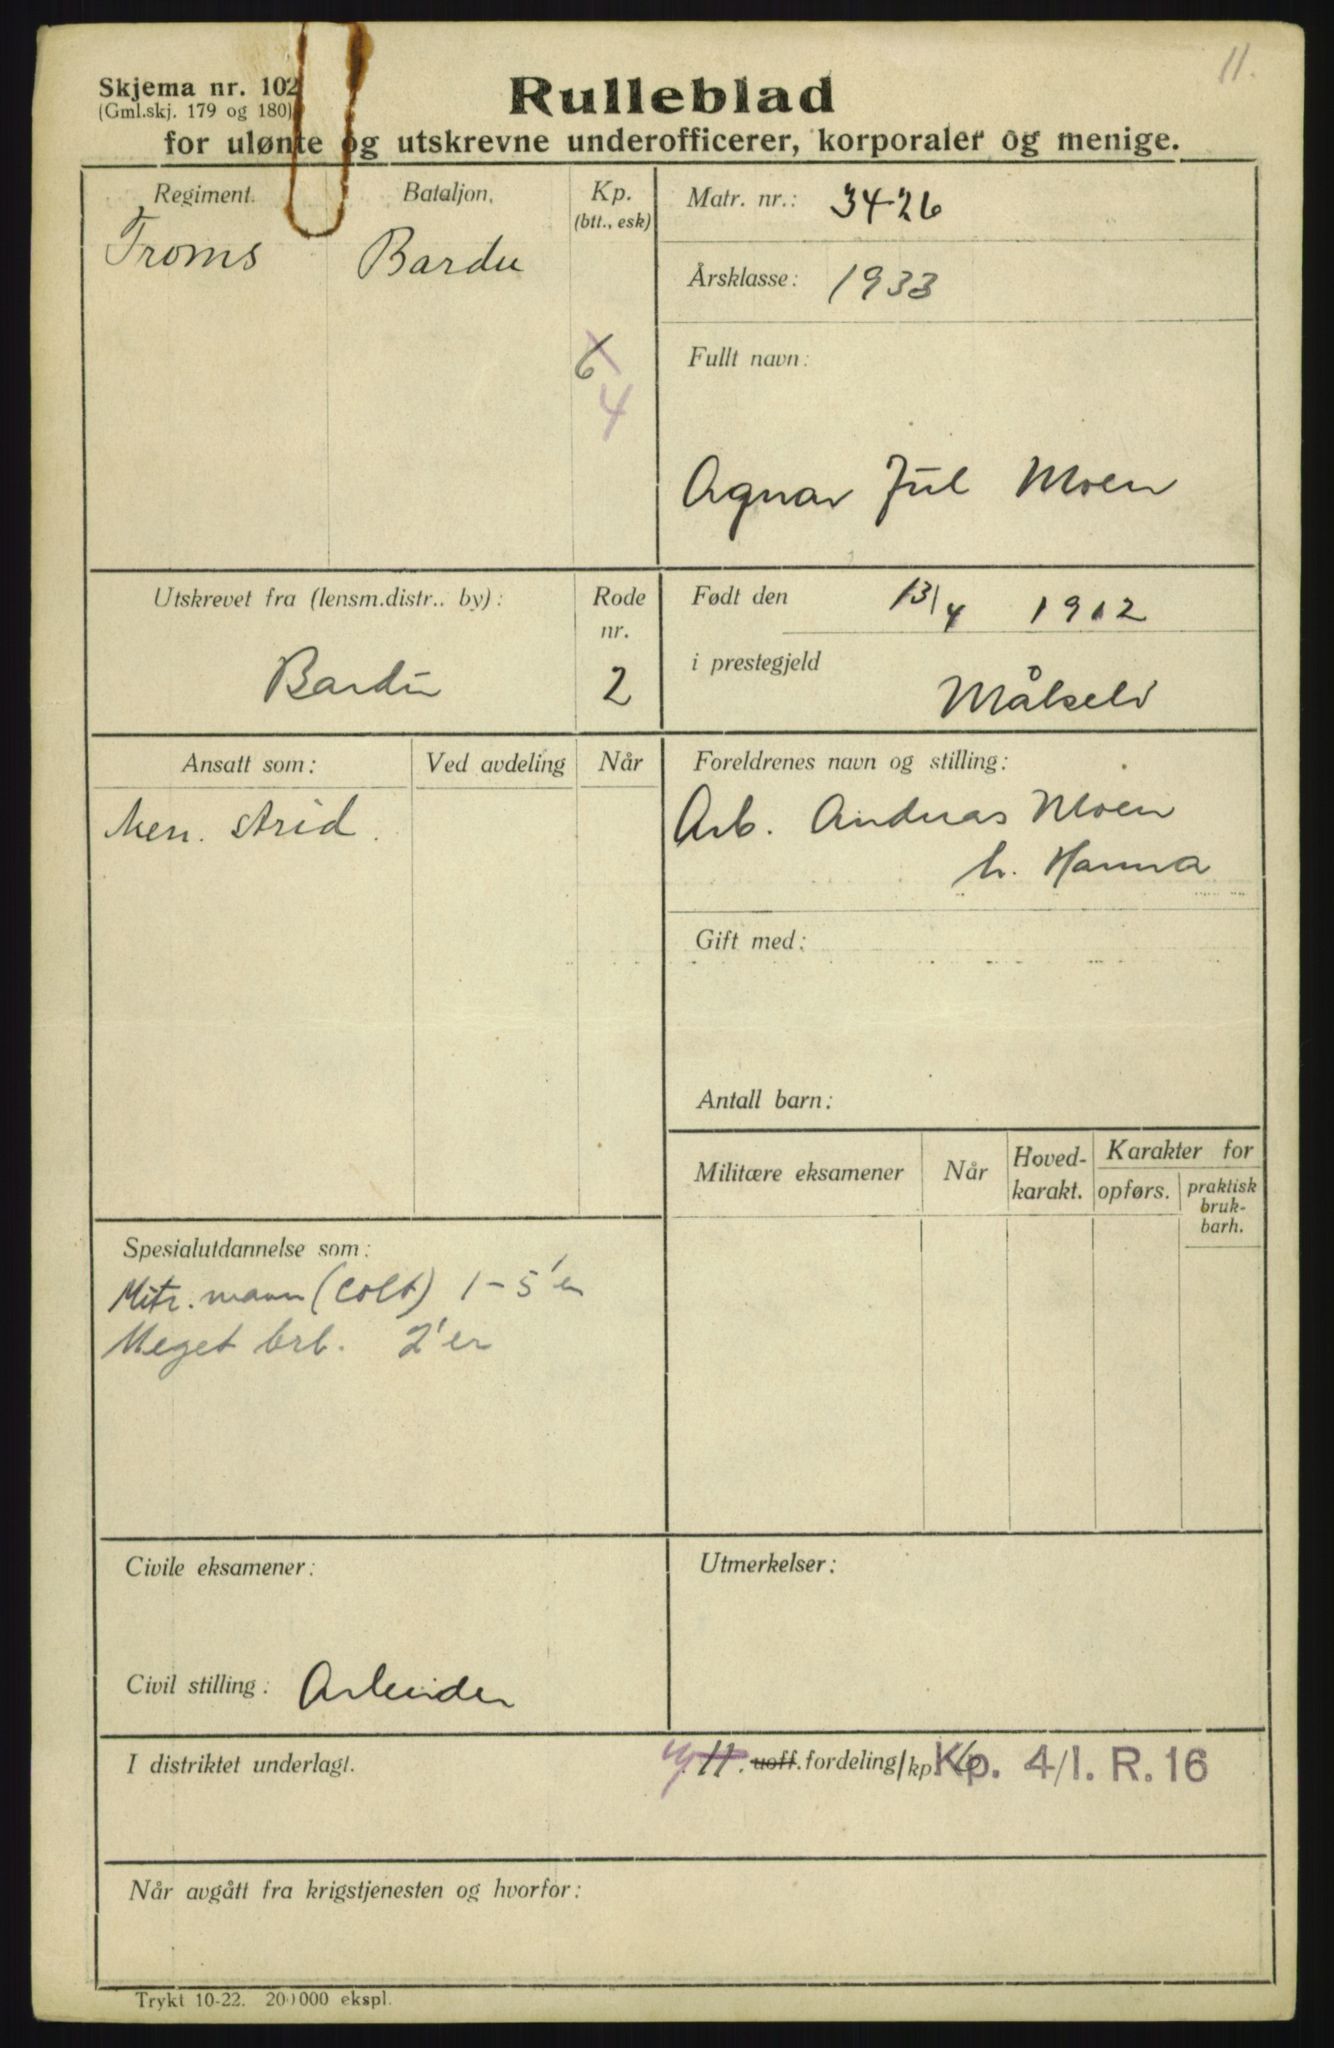 11.
Skjema nr. 102
(Gml.skj. 179 og 180)
Rulleblad
for ulønte og utskrevne underofficerer, korporaler og menige.
Regiment. Bataljon. Kp.
(btt., esk)
Troms Bardu
6
4
Matr. nr.: 3426
Årsklasse: 1933
Fullt navn:
Agnar Jul Moen
Utskrevet fra (lensm.distr.. by): Rode
nr.
Bardu 2
Født den 13/4 1912
i prestegjeld
Målselv
Ansatt som: Ved avdeling Når
Men. strid.
Foreldrenes navn og stilling:
Arb. Andreas Moen
h. Hanna
Gift med:
Antall barn:
Militære eksamener Når Hoved-
karakt. Karakter for
opførs. praktisk
bruk-
barh.
Spesialutdannelse som:
Mitr. mann (Colt) 1-5'er
Meget brb. 2'er
Civile eksamener:
Civil stilling: Arbeider
Utmerkelser:
I distriktet underlagt.
11. uoff. fordeling/kp. 6 Kp. 4/I. R. 16
Når avgått fra krigstjenesten og hvorfor:
Trykt 10-22. 200000 ekspl.